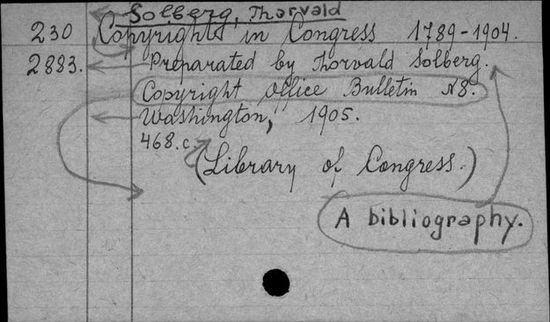 Solberg, Thorvald
230 Copyrights in Congress 1789-1904.
2883. Preparated by Thorvald Solberg.
Copyright Office Bulletin N8.
Washington, 1905.
468.c.
(Library of Congress.)
A bibliography.